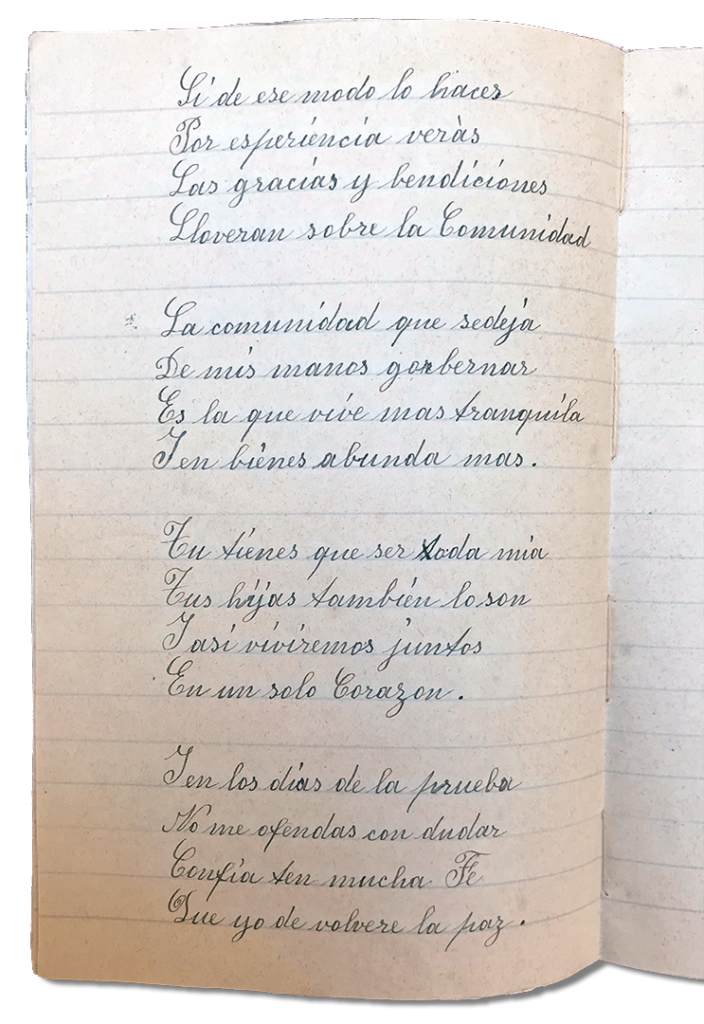 Si de ese modo lo haces
Por esperiencia veràs
Las gracias y bendiciones
Lloveran sobre la Comunidad
La comunidad que sedeja
De mis manos gobernar
Es la que vive mas tranquila
I en bienes abunda mas.
Tu tienes que ser toda mia
Tus hijas también lo son
I asi viviremos juntos
En un solo Corazon.
I en los dias de la prueba
No me ofendas con dudar
Confia ten mucha Fe
Que yo de volvere la paz.